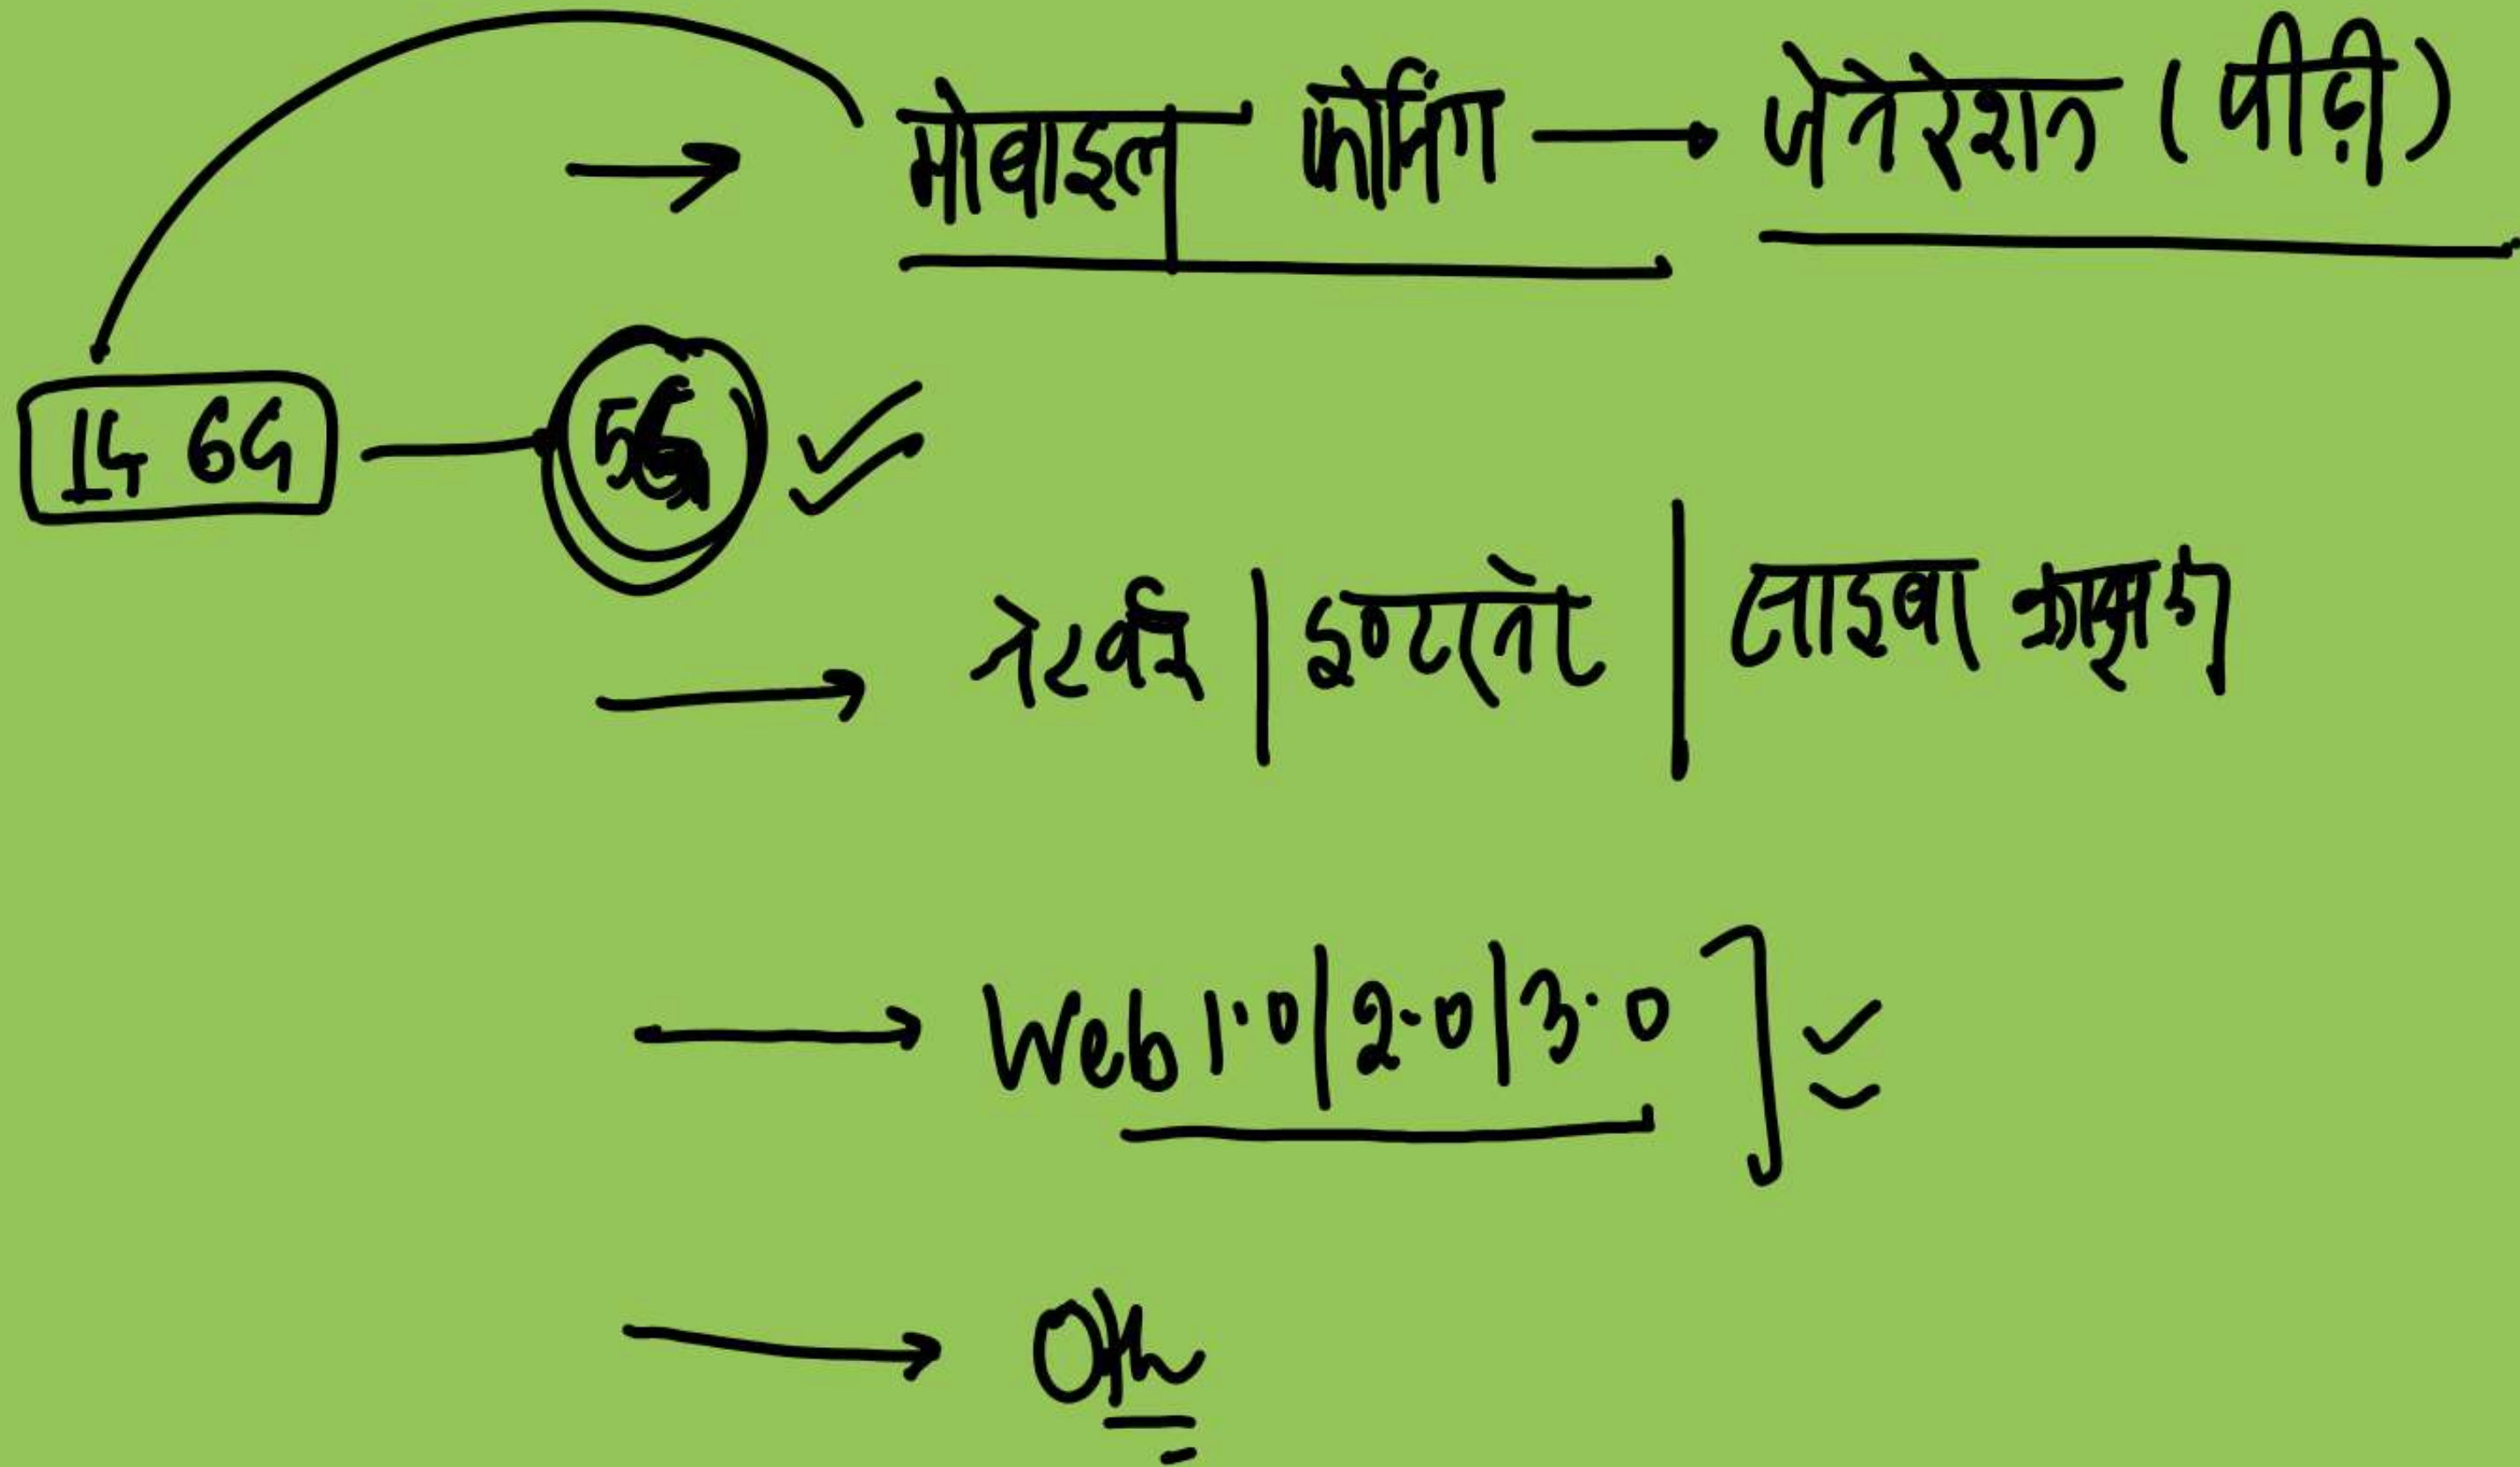 → मोबाइल फोनिंग → जेनरेशन (पीढ़ी)
1G 6G — 5G ✓✓
→ नेटवर्क | इण्टरनेट | साइबर क्राइम
→ Web 1.0 | 2.0 | 3.0 ] ✓
→ Oth